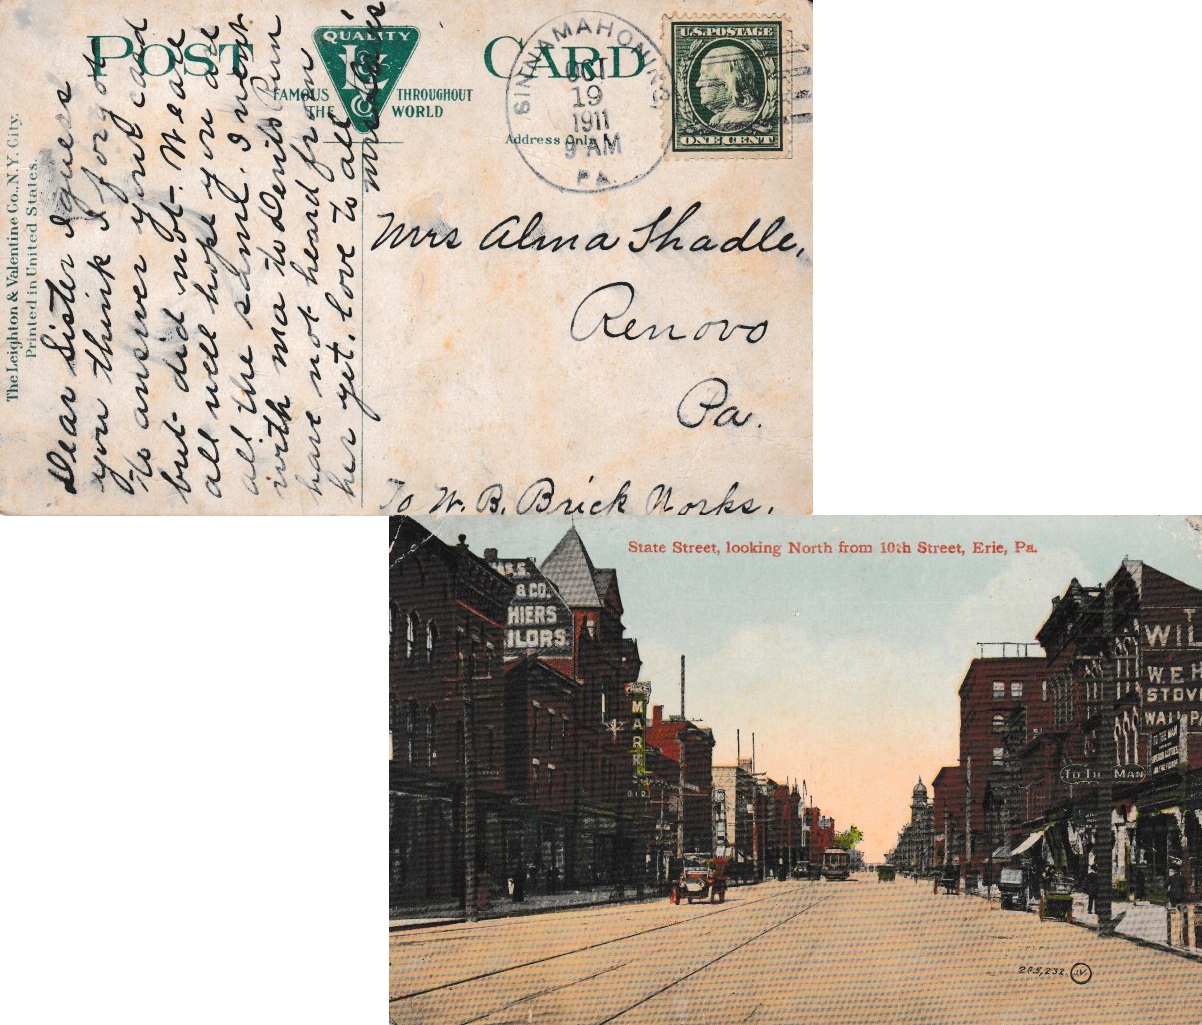 POST CARD
QUALITY
L&V
Co
FAMOUS THROUGHOUT
THE WORLD
Address Only
SINNAMAHONING
OCT
19
1911
9 AM
PA.
U.S. POSTAGE
ONE CENT
The Leighton & Valentine Co., N.Y. City.
Printed in United States.
Dear Sister I guess
you think I forgot
to answer your card
but did not. We are
all well hope you are
all the same. I went
with ma to Devils Run
have not heard from
her yet. love to all
Mrs
Mrs Alma Shadle,
Renovo
Pa.
To W. B. Brick Works.
State Street, looking North from 10th Street, Erie, Pa.
& CO.
HIERS
ILORS.
MARK
WIL
W.E.H
STOV
WALL PA
TO THE MAN
205,232. JV